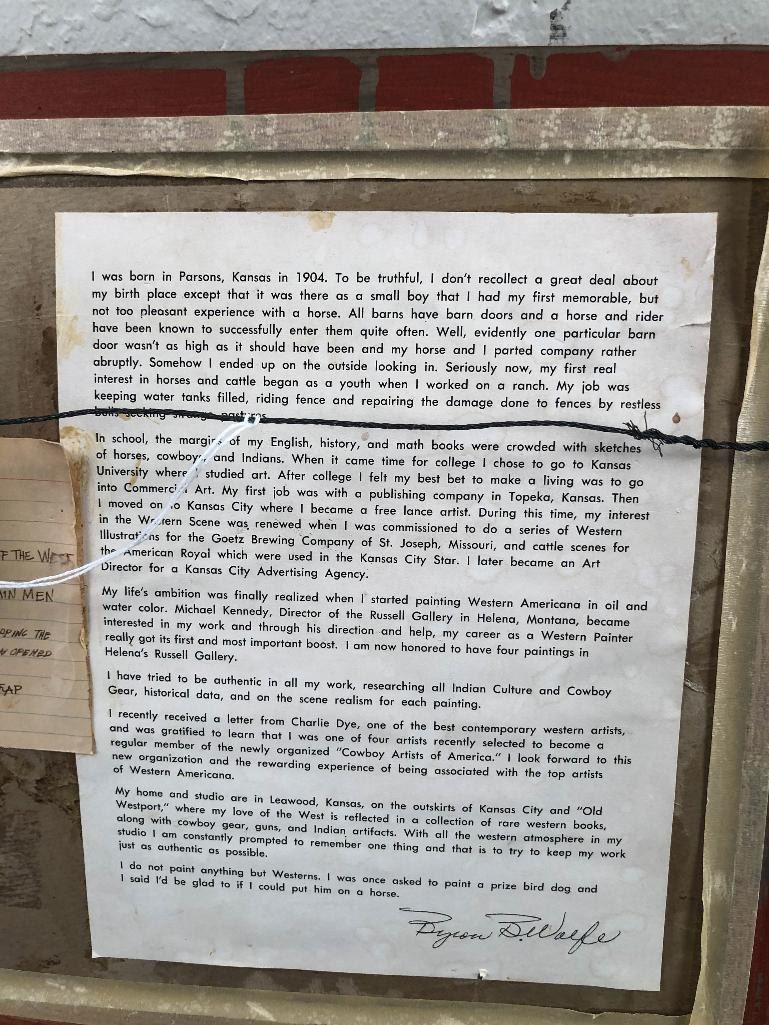 I was born in Parsons, Kansas in 1904. To be truthful, I don't recollect a great deal about
my birth place except that it was there as a small boy that I had my first memorable, but
not too pleasant experience with a horse. All barns have barn doors and a horse and rider
have been known to successfully enter them quite often. Well, evidently one particular barn
door wasn't as high as it should have been and my horse and I parted company rather
abruptly. Somehow I ended up on the outside looking in. Seriously now, my first real
interest in horses and cattle began as a youth when I worked on a ranch. My job was
keeping water tanks filled, riding fence and repairing the damage done to fences by restless
bulls seeking strange pastures.
In school, the margins of my English, history, and math books were crowded with sketches
of horses, cowboys, and Indians. When it came time for college I chose to go to Kansas
University where I studied art. After college I felt my best bet to make a living was to go
into Commercial Art. My first job was with a publishing company in Topeka, Kansas. Then
I moved on to Kansas City where I became a free lance artist. During this time, my interest
in the Western Scene was renewed when I was commissioned to do a series of Western
Illustrations for the Goetz Brewing Company of St. Joseph, Missouri, and cattle scenes for
the American Royal which were used in the Kansas City Star. I later became an Art
Director for a Kansas City Advertising Agency.
My life's ambition was finally realized when I started painting Western Americana in oil and
water color. Michael Kennedy, Director of the Russell Gallery in Helena, Montana, became
interested in my work and through his direction and help, my career as a Western Painter
really got its first and most important boost. I am now honored to have four paintings in
Helena's Russell Gallery.
I have tried to be authentic in all my work, researching all Indian Culture and Cowboy
Gear, historical data, and on the scene realism for each painting.
I recently received a letter from Charlie Dye, one of the best contemporary western artists,
and was gratified to learn that I was one of four artists recently selected to become a
regular member of the newly organized "Cowboy Artists of America." I look forward to this
new organization and the rewarding experience of being associated with the top artists
of Western Americana.
My home and studio are in Leawood, Kansas, on the outskirts of Kansas City and "Old
Westport," where my love of the West is reflected in a collection of rare western books,
along with cowboy gear, guns, and Indian artifacts. With all the western atmosphere in my
studio I am constantly prompted to remember one thing and that is to try to keep my work
just as authentic as possible.
I do not paint anything but Westerns. I was once asked to paint a prize bird dog and
I said I'd be glad to if I could put him on a horse.
Byron B. Wolfe
F THE WEST
IN MEN
THE
OPENED